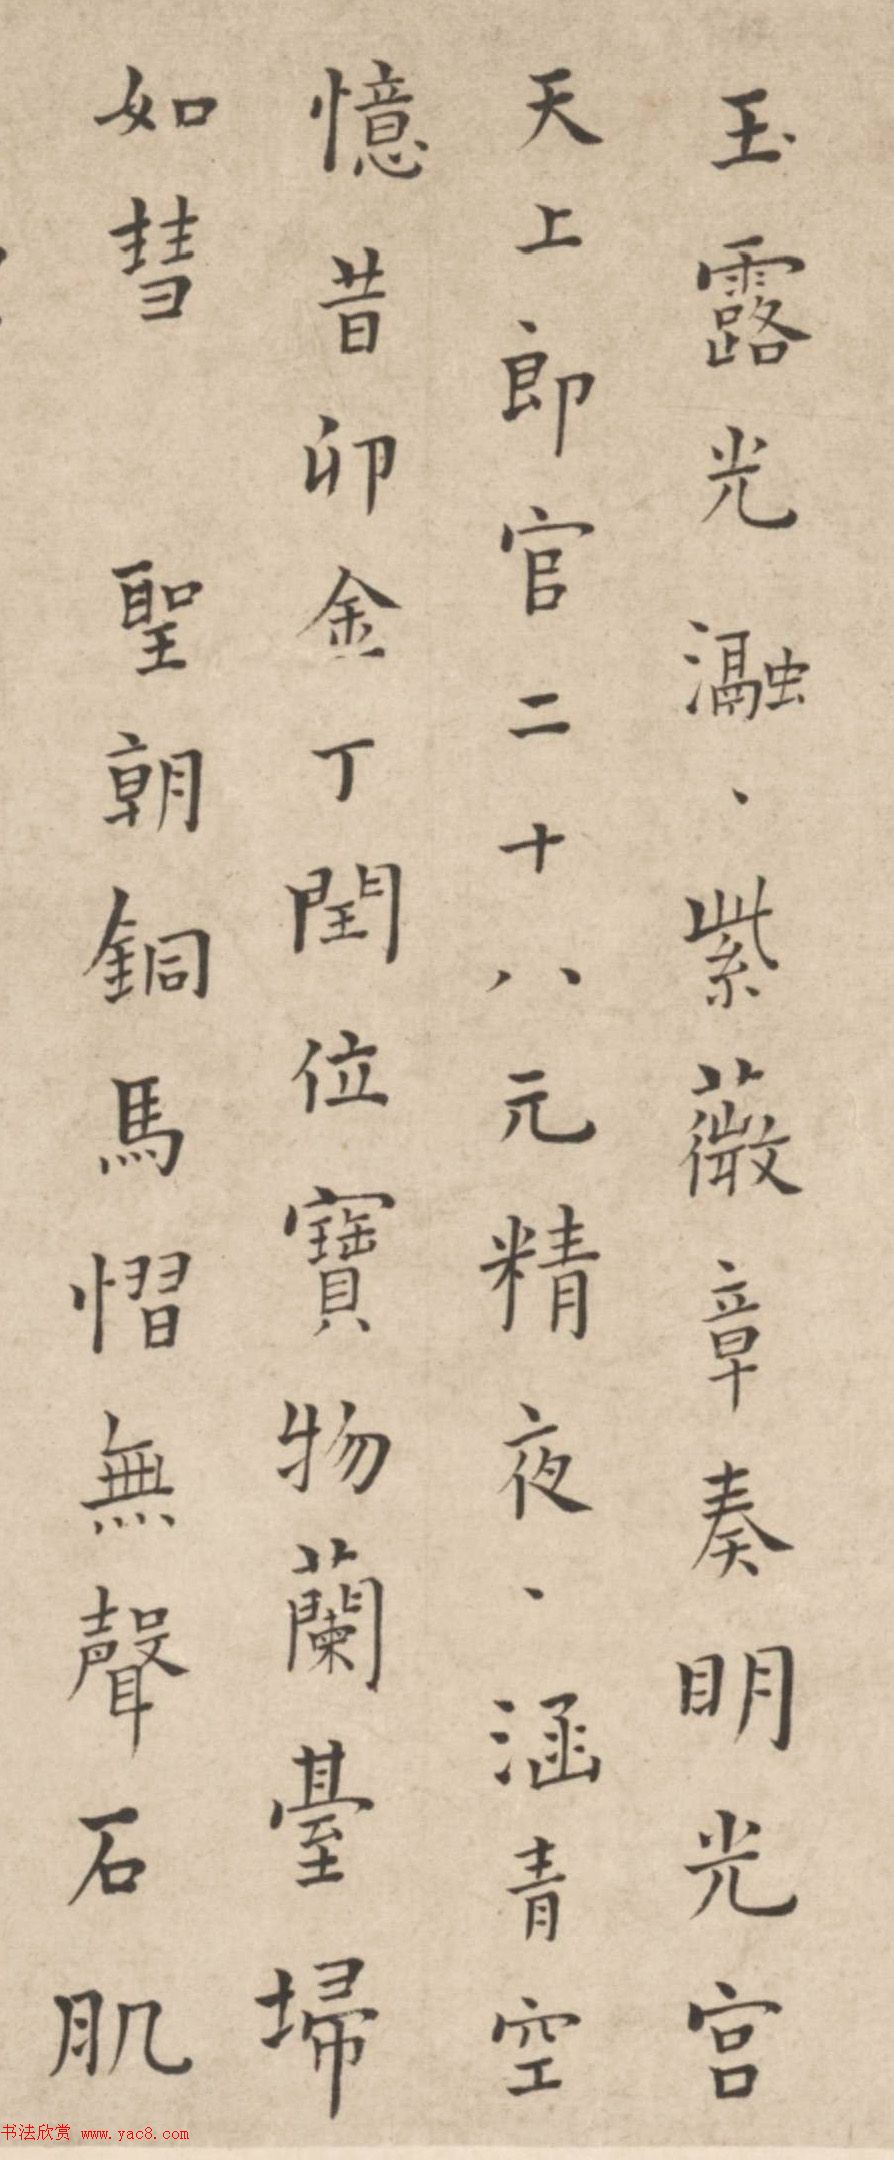 玉露光瀜、紫薇章奏明光宮
天上郎官二十八元精夜、涵青空
憶昔卯金丁閏位寶物蘭臺埽
如彗 聖朝銅馬慴無聲石肌
书法欣赏 www.yac8.com